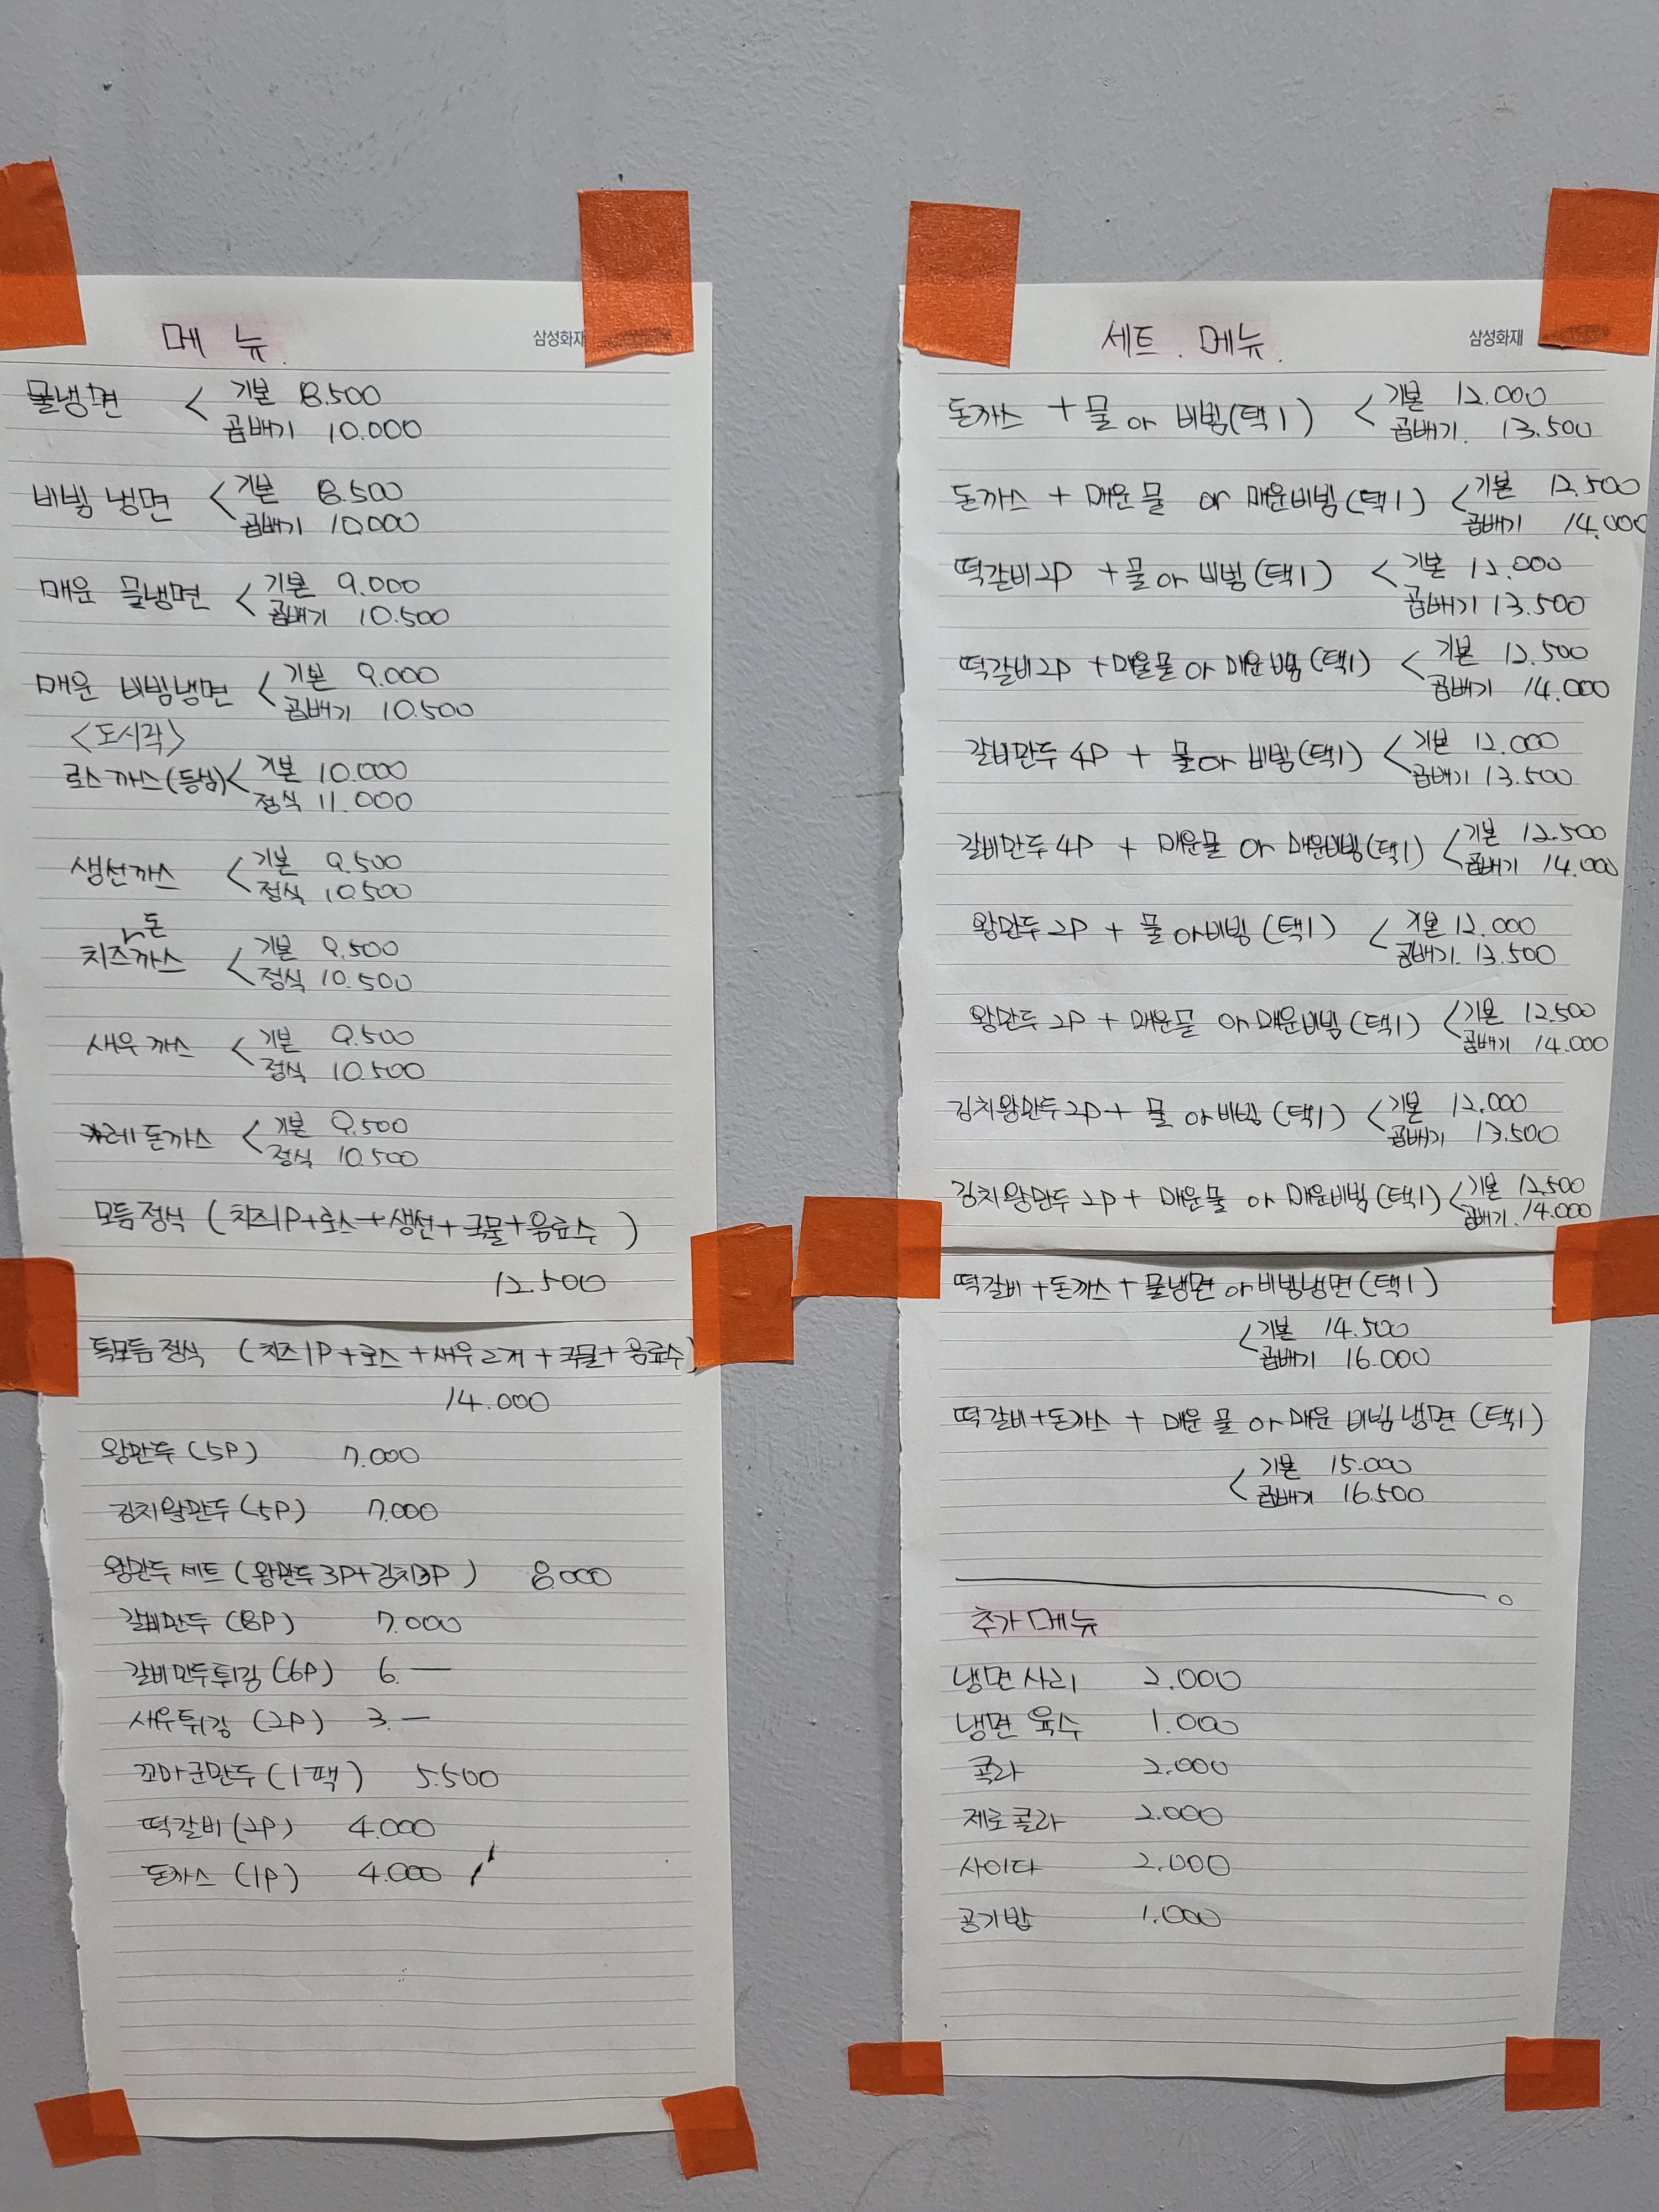 메 뉴.
삼성화재
물냉면 < 기본 8.500
곱배기 10.000
비빔냉면 < 기본 8.500
곱배기 10.000
매운 물냉면 < 기본 9.000
곱배기 10.500
매운 비빔냉면 < 기본 9.000
곱배기 10.500
<도시락>
로스까스(등심) < 기본 10.000
정식 11.000
생선까스 < 기본 9.500
정식 10.500
치즈돈까스 < 기본 9.500
정식 10.500
새우까스 < 기본 9.500
정식 10.500
카레돈까스 < 기본 9.500
정식 10.500
모듬정식 (치즈1P+로스+생선+국물+음료수)
12.500
특모듬정식 (치즈1P+로스+새우2개+국물+음료수)
14.000
왕만두(5P) 7.000
김치왕만두(5P) 7.000
왕만두세트(왕만두3P+김치3P) 8.000
갈비만두(8P) 7.000
갈비만두튀김(6P) 6.—
새우튀김(2P) 3.—
꼬마군만두(1팩) 5.500
떡갈비(2P) 4.000
돈까스(1P) 4.000
세트. 메뉴.
삼성화재
돈까스 + 물 or 비빔(택1) < 기본 12.000
곱배기. 13.500
돈까스 + 매운물 or 매운비빔(택1) < 기본 12.500
곱배기 14.000
떡갈비2P + 물 or 비빔(택1) < 기본 12.000
곱배기 13.500
떡갈비2P + 매운물 or 매운비빔(택1) < 기본 12.500
곱배기 14.000
갈비만두4P + 물 or 비빔(택1) < 기본 12.000
곱배기 13.500
갈비만두4P + 매운물 or 매운비빔(택1) < 기본 12.500
곱배기 14.000
왕만두2P + 물 or 비빔(택1) < 기본 12.000
곱배기. 13.500
왕만두2P + 매운물 or 매운비빔(택1) < 기본 12.500
곱배기 14.000
김치왕만두2P + 물 or 비빔(택1) < 기본 12.000
곱배기 13.500
김치왕만두2P + 매운물 or 매운비빔(택1) < 기본 12.500
곱배기. 14.000
떡갈비+돈까스+물냉면 or 비빔냉면(택1)
< 기본 14.500
곱배기 16.000
떡갈비+돈까스 + 매운물 or 매운 비빔냉면(택1)
< 기본 15.000
곱배기 16.500
추가메뉴
냉면사리 2.000
냉면육수 1.000
콜라 2.000
제로콜라 2.000
사이다 2.000
공기밥 1.000